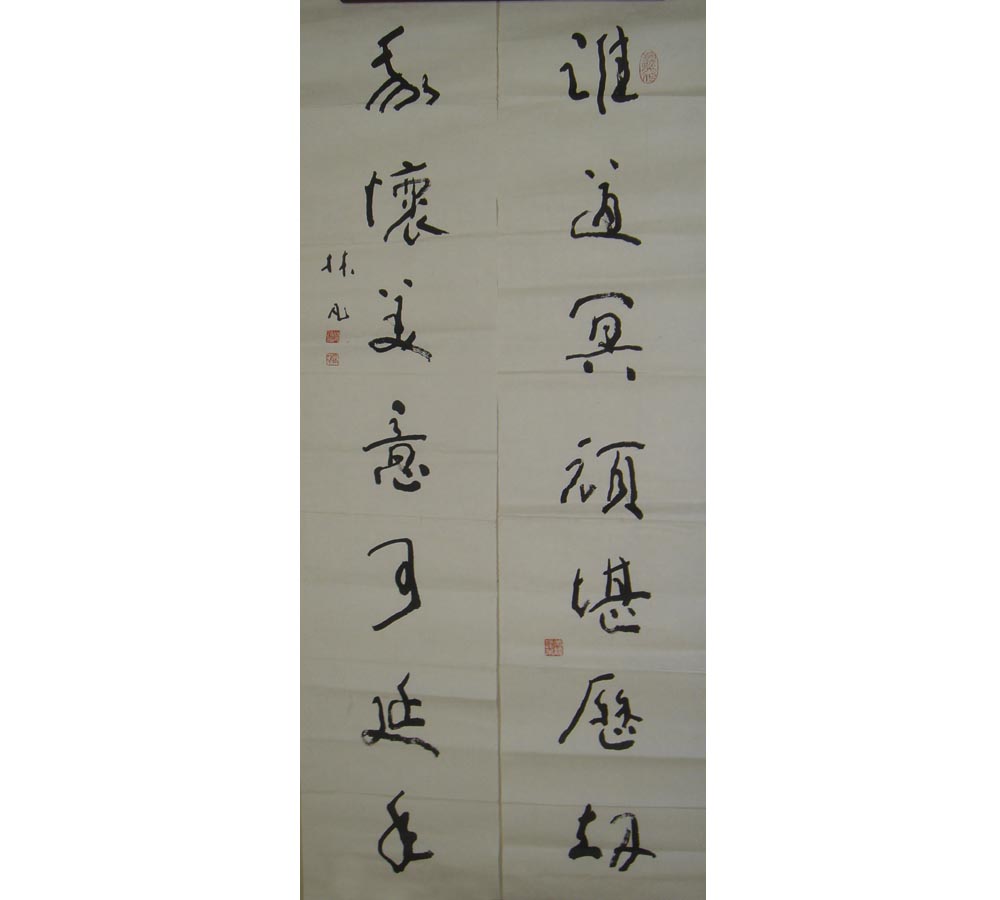 誰道冥頑堪歷劫
我懷美意可延年
林凡